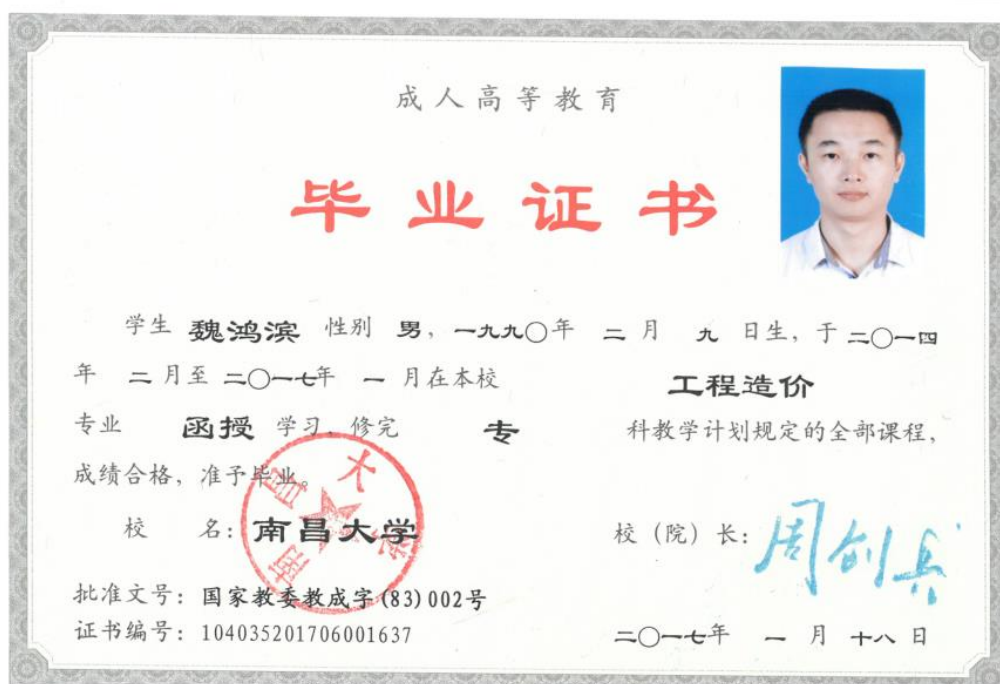 成人高等教育
毕业证书
学生 魏鸿滨 性别 男，一九九〇年 二 月 九 日生，于二〇一四
年 二月至二〇一七年 一 月在本校 工程造价
专业 函授 学习，修完 专 科教学计划规定的全部课程，
成绩合格，准予毕业。
南昌大学
校 名：南昌大学 校（院）长：周创兵
批准文号：国家教委教成字(83)002号
证书编号：104035201706001637 二〇一七年 一 月 十八 日